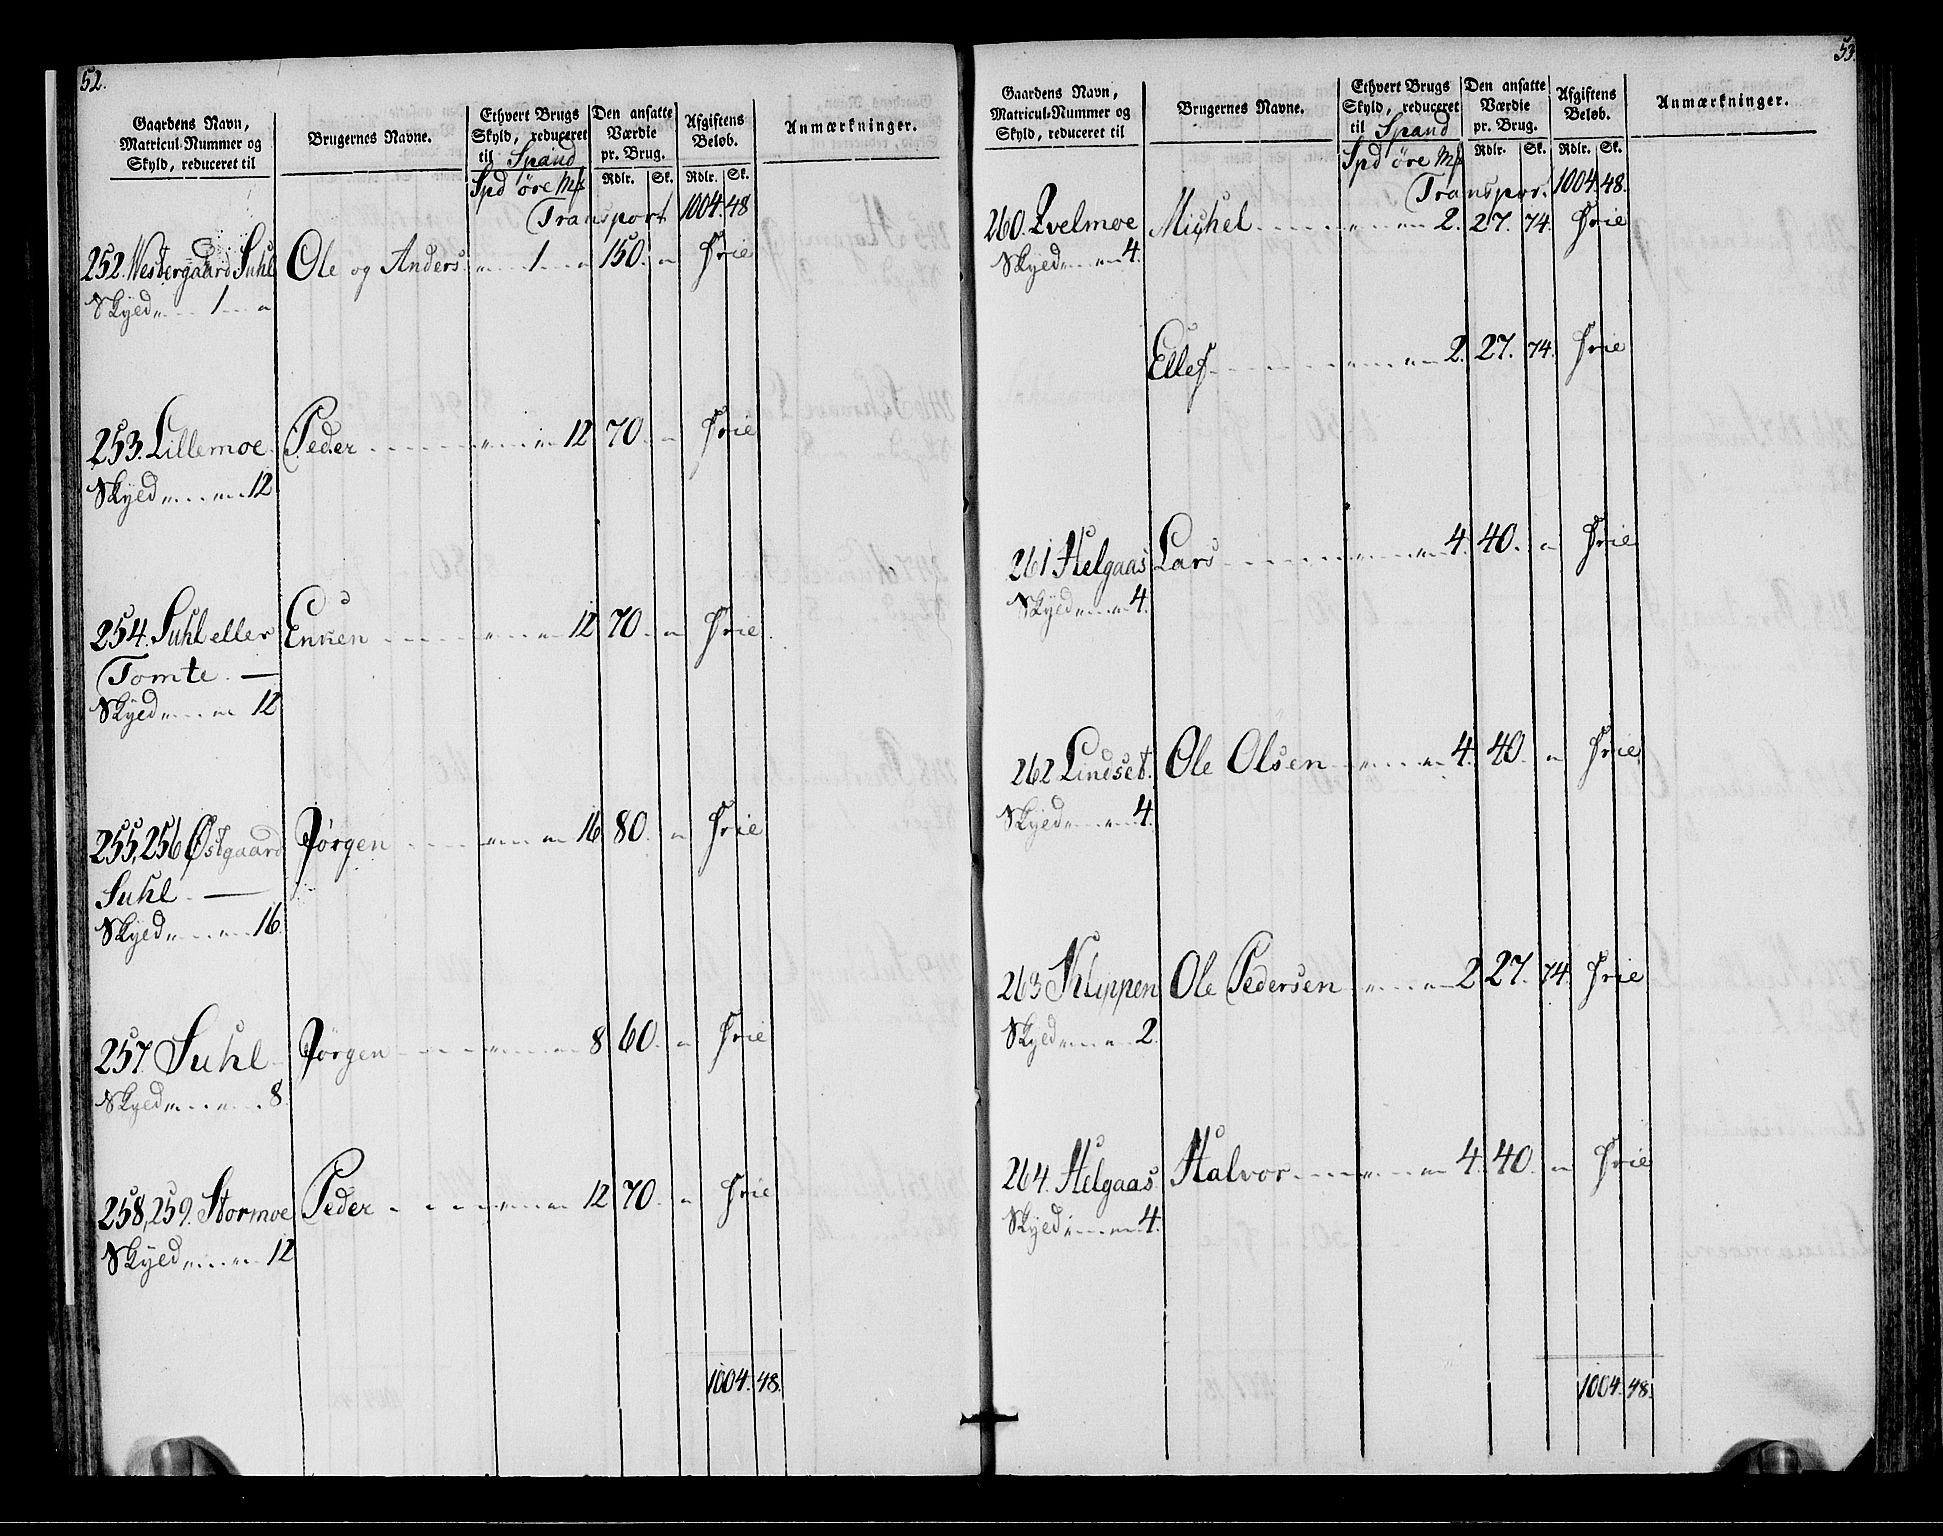 52.
Gaardens Navn, Matricul-Nummer og Skyld, reduceret til
Brugernes Navne.
Ethvert Brugs Skyld, reduceret til Spand
Den ansatte Værdie pr. Brug.
Afgiftens Beløb.
Anmærkninger.
Spd øre Mk Rdlr. Sk. Rdlr. Sk.
Transport 1004. 48
252. Westergaard Suhl Ole og Anders „ 1 „ 150. „ Frie
Skyld „ 1 „
253. Lillemoe Peder „ „ 12 70. „ Frie
Skyld „ „ 12
254. Suhl eller Enken „ „ 12 70. „ Frie
Tomte. —
Skyld „ „ 12
255, 256 Østgaard Jørgen „ „ 16 80. „ Frie
Suhl —
Skyld „ „ 16.
257. Suhl Jørgen „ „ 8 60. „ Frie
Skyld „ „ 8
258, 259. Stormoe Peder „ „ 12 70. „ Frie
Skyld „ „ 12
1004. 48.
53.
Gaardens Navn, Matricul-Nummer og Skyld, reduceret til
Brugernes Navne.
Ethvert Brugs Skyld, reduceret til Spand
Den ansatte Værdie pr. Brug.
Afgiftens Beløb.
Anmærkninger.
Spd øre Mk Rdlr. Sk. Rdlr. Sk.
Transport 1004. 48.
260. Qvelmoe Michel „ „ 2. 27. 74. Frie
Skyld „ „ 4.
Ellef „ „ 2. 27. 74. Frie
261 Helgaas Lars „ „ 4. 40. „ Frie
Skyld „ „ 4.
262 Lindset. Ole Olsen „ „ 4. 40. „ Frie
Skyld „ „ 4.
263 Klippen Ole Pedersen „ „ 2 27. 74. Frie
Skyld „ „ 2.
264. Helgaas Halvor „ „ 4. 40. „ Frie
Skyld „ „ 4.
1004. 48.